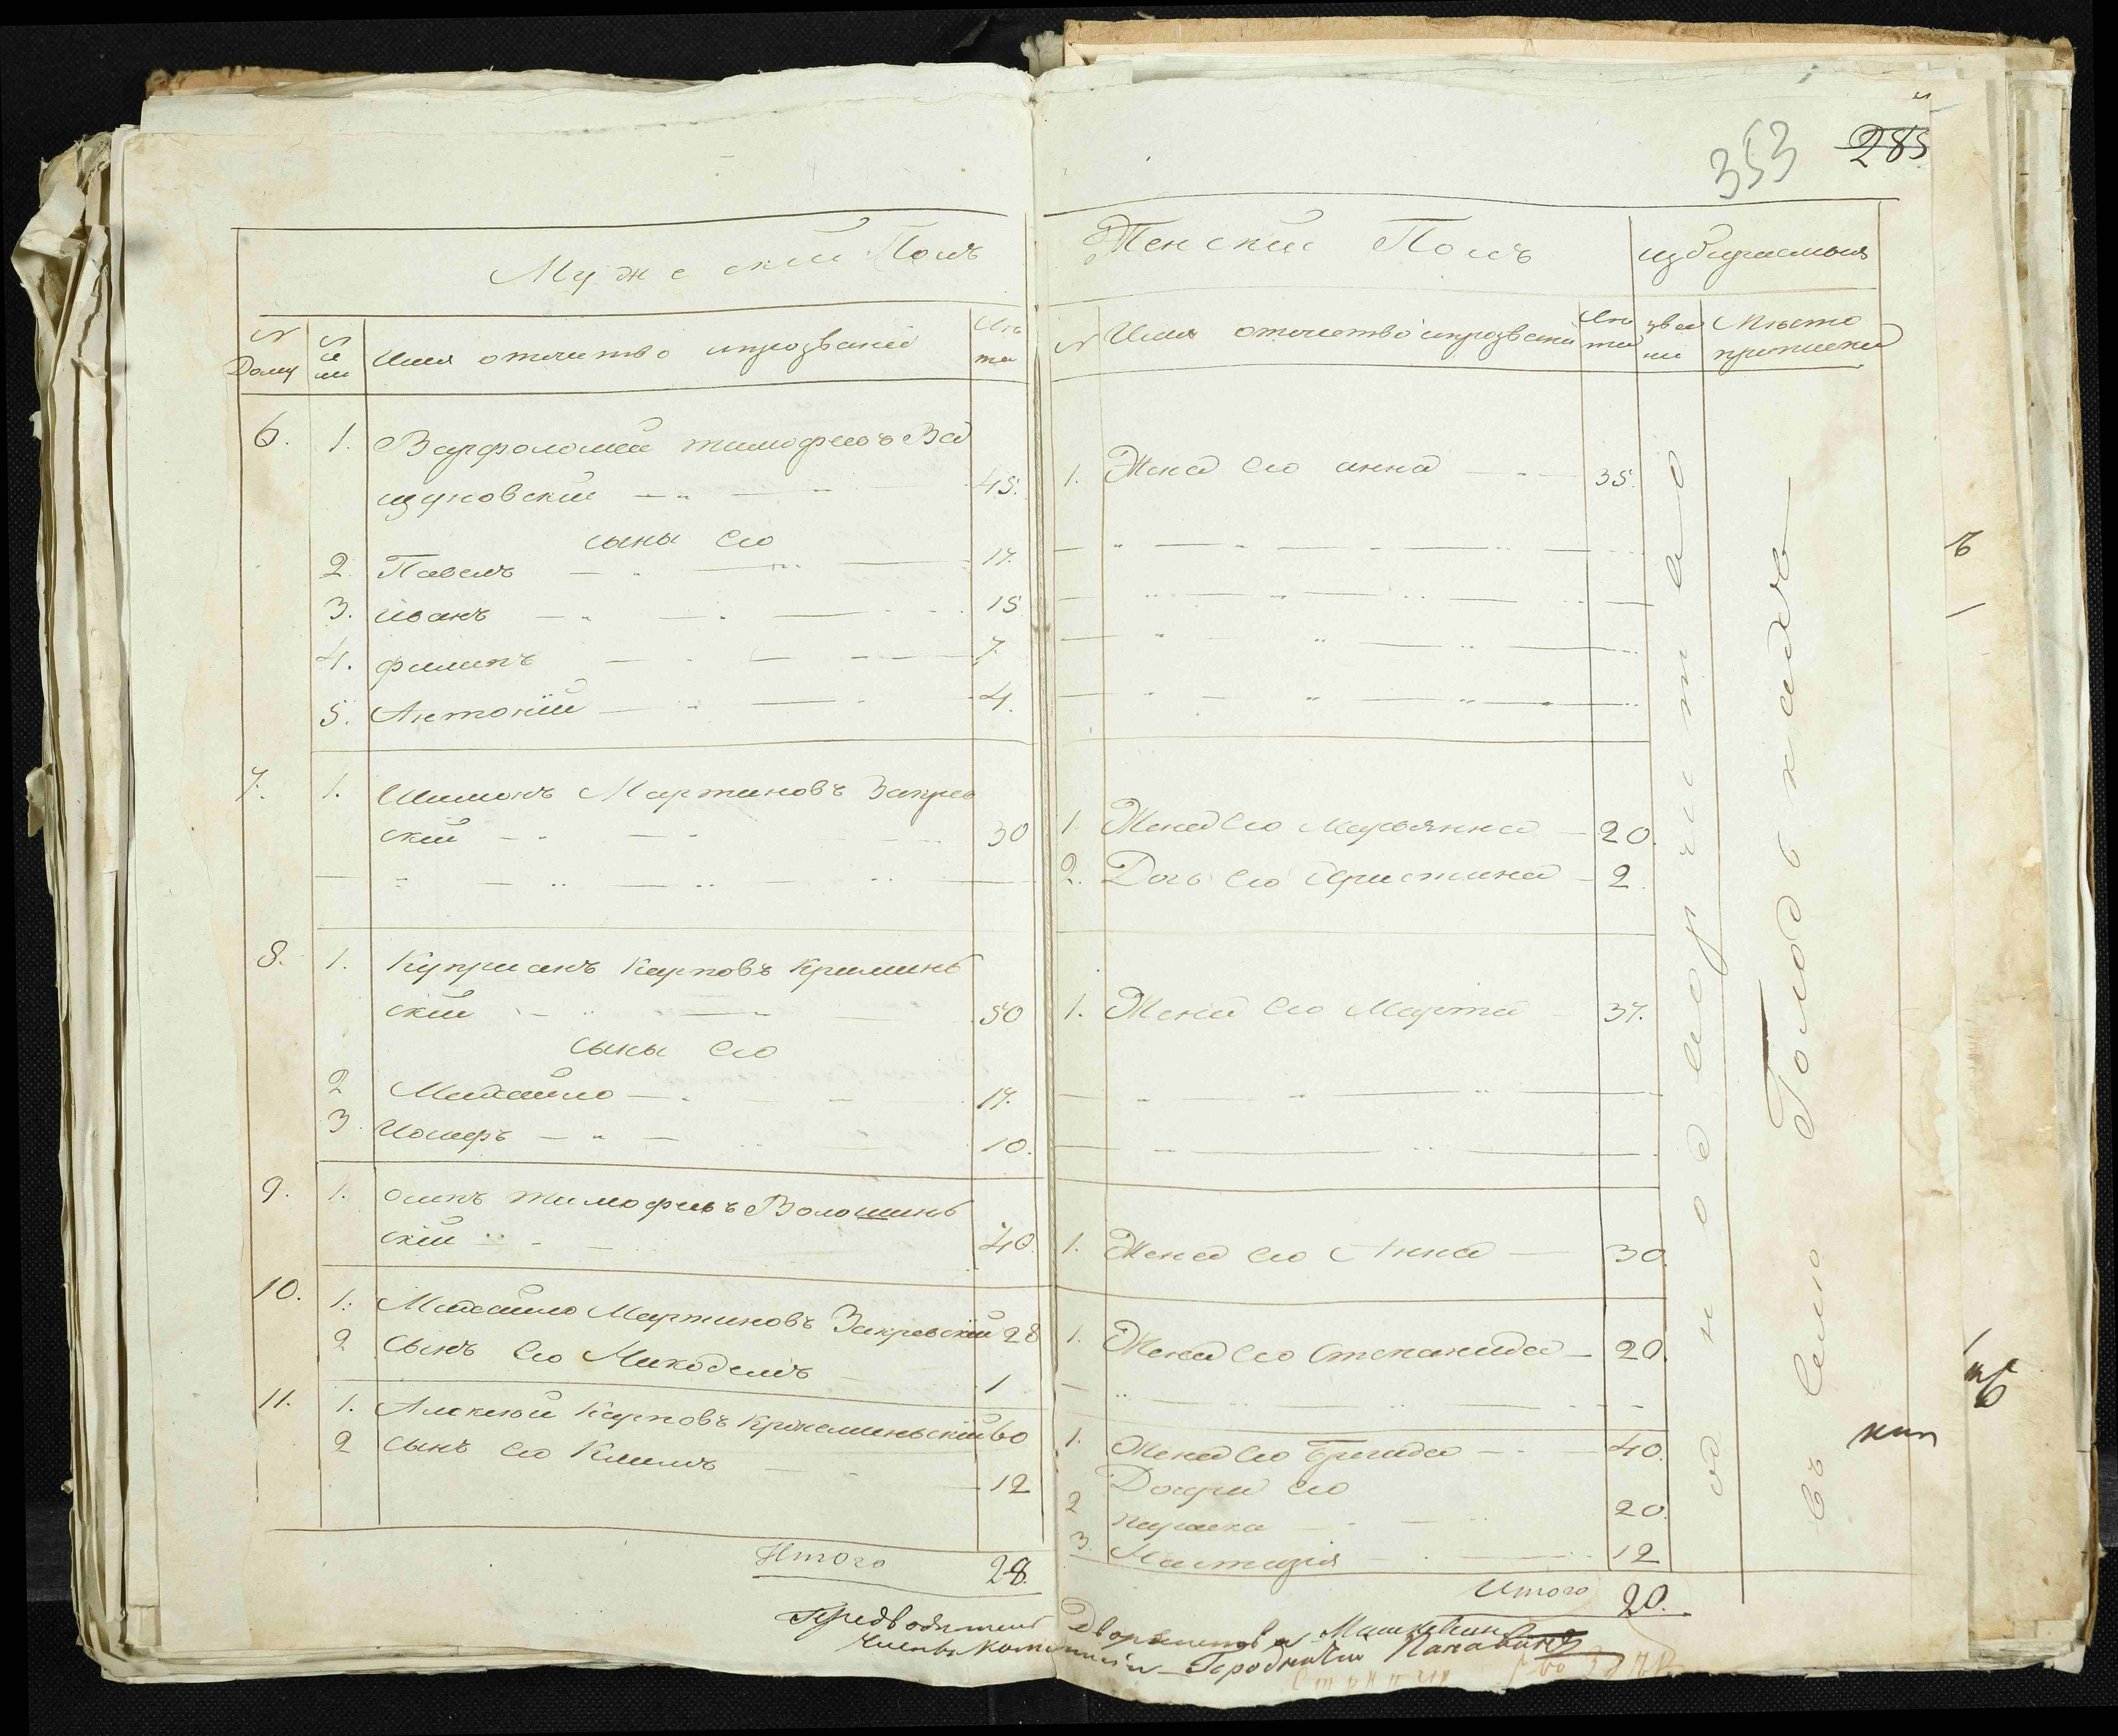 353 285
Мужескій Полъ
№ Дому
№ се ми
Имя отечество ипрозваніе
Лѣ та
6. 1. Варфоломей тимофеевъ Ва
щуковскій 45.
сыны его
2. Павелъ 17.
3. иванъ 15
4. филипъ 7.
5. Антоній 4.
7. 1. Шимонъ Мартиновъ Закрев
скій 30
8. 1. Куприанъ Карповъ Криминь
скій 50
сыны его
2 Михайло 17.
3 Иосифъ 10.
9. 1. осипъ тимофеевъ Волошинь
скій 40.
10. 1. Михайло Мартиновъ Закревскій 28
2 Сынъ его Никодемъ 1
11. 1. Алексей Карповъ Кржеминьскій 60
2 сынъ его Климъ 12
Итого 28.
Женскій Полъ
избираемыя
№ Имя отечество ипрозваніе
Лѣ та
зва ніе
Мѣсто приписки
1. Жена его анна 35.
1. Жена его Марьянна 20.
2. Дочь его Христина 2.
1. Жена его Марта 37.
1. Жена его Анна 30.
1. Жена его Степанида 20.
1. Жена его Бригида 40.
Дочери его
2 параска 20.
3. Настазія 12
Итого 20.
однодворчитао
въ Село Голодвкахъ
Предводитель Дворянства
Членъ Комиссіи Городничій
ъ
кип